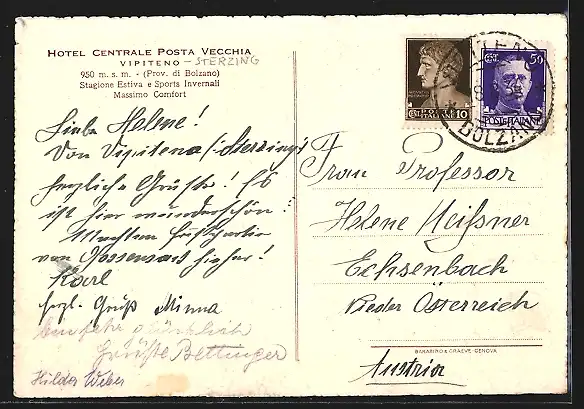 HOTEL CENTRALE POSTA VECCHIA
VIPITENO - STERZING
950 m. s. m. - (Prov. di Bolzano)
Stagione Estiva e Sports Invernali
Massimo Comfort
Liebe Helene!
Von Vipiteno (Sterzing)
herzliche Grüße! Es
ist hier wunderschön.
Machten
von Gossensass hieher!
Karl
herzl. Gruß Minna
Grüße Bettinger
Hilda Weber
POSTE ITALIANE 10
CENT. 50
POSTE ITALIANE
BOLZANO
Frau Professor
Helene Meißner
Echsenbach
Nieder Österreich
BANARINO & GRAEVE-GENOVA
Austria